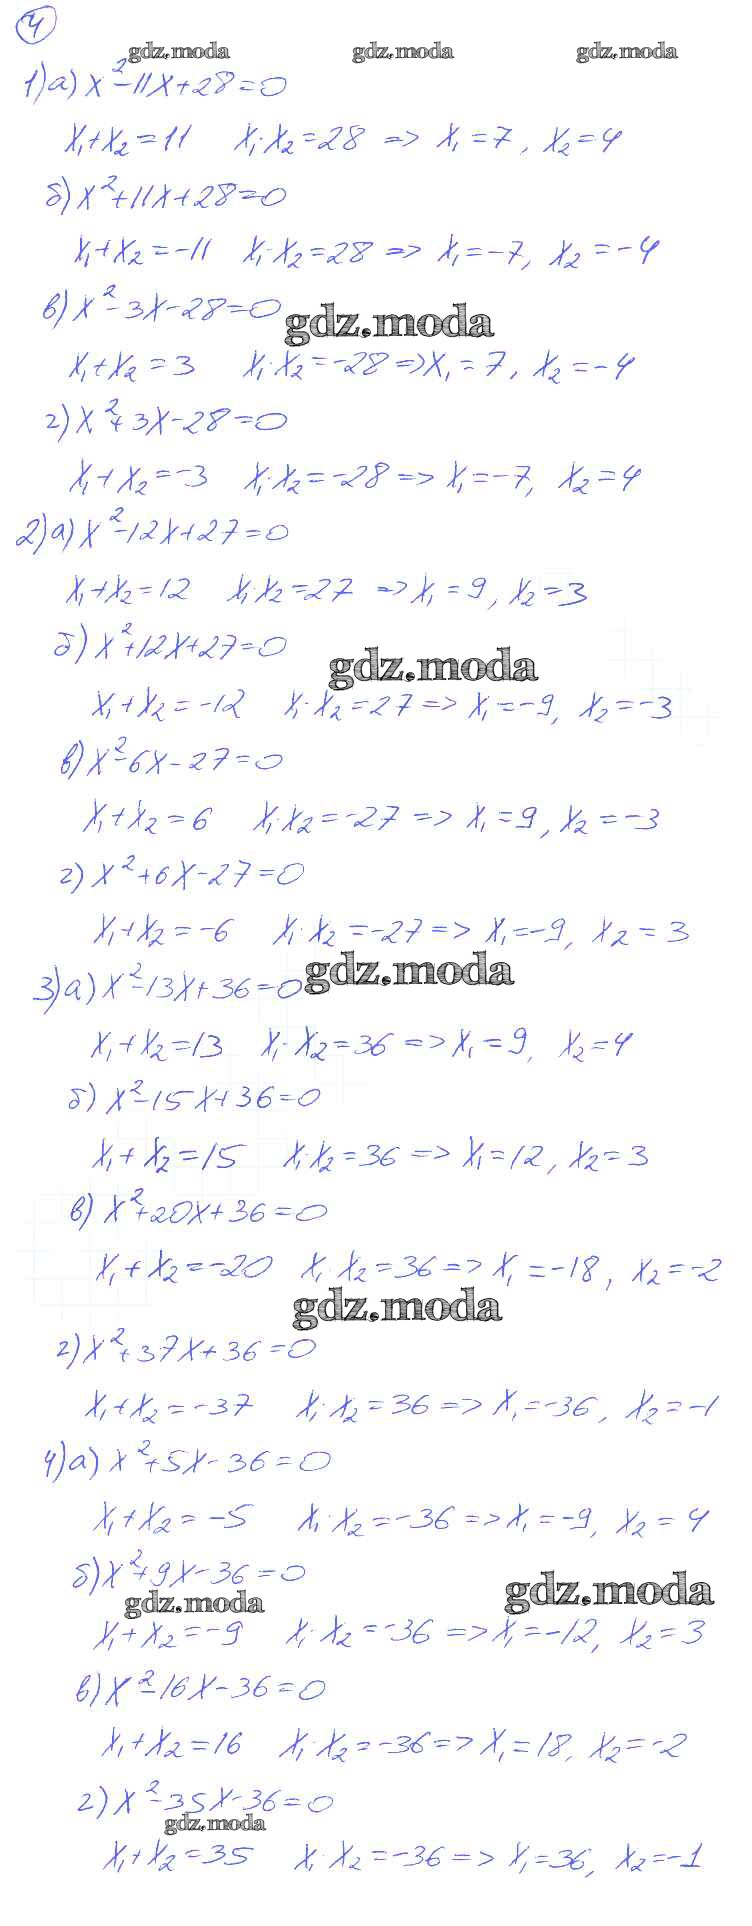 4
gdz.moda gdz.moda gdz.moda
1) а) x²-11x+28=0
x₁+x₂=11 x₁·x₂=28 => x₁=7, x₂=4
б) x²+11x+28=0
x₁+x₂=-11 x₁·x₂=28 => x₁=-7, x₂=-4
в) x²-3x-28=0
gdz.moda
x₁+x₂=3 x₁·x₂=-28 => x₁=7, x₂=-4
г) x²+3x-28=0
x₁+x₂=-3 x₁·x₂=-28 => x₁=-7, x₂=4
2) а) x²-12x+27=0
x₁+x₂=12 x₁·x₂=27 => x₁=9, x₂=3
б) x²+12x+27=0
gdz.moda
x₁+x₂=-12 x₁·x₂=27 => x₁=-9, x₂=-3
в) x²-6x-27=0
x₁+x₂=6 x₁·x₂=-27 => x₁=9, x₂=-3
г) x²+6x-27=0
x₁+x₂=-6 x₁·x₂=-27 => x₁=-9, x₂=3
3) а) x²-13x+36=0
gdz.moda
x₁+x₂=13 x₁·x₂=36 => x₁=9, x₂=4
б) x²-15x+36=0
x₁+x₂=15 x₁·x₂=36 => x₁=12, x₂=3
в) x²+20x+36=0
x₁+x₂=-20 x₁·x₂=36 => x₁=-18, x₂=-2
gdz.moda
г) x²+37x+36=0
x₁+x₂=-37 x₁·x₂=36 => x₁=-36, x₂=-1
4) а) x²+5x-36=0
x₁+x₂=-5 x₁·x₂=-36 => x₁=-9, x₂=4
б) x²+9x-36=0
gdz.moda gdz.moda
x₁+x₂=-9 x₁·x₂=-36 => x₁=-12, x₂=3
в) x²-16x-36=0
x₁+x₂=16 x₁·x₂=-36 => x₁=18, x₂=-2
г) x²-35x-36=0
gdz.moda
x₁+x₂=35 x₁·x₂=-36 => x₁=36, x₂=-1